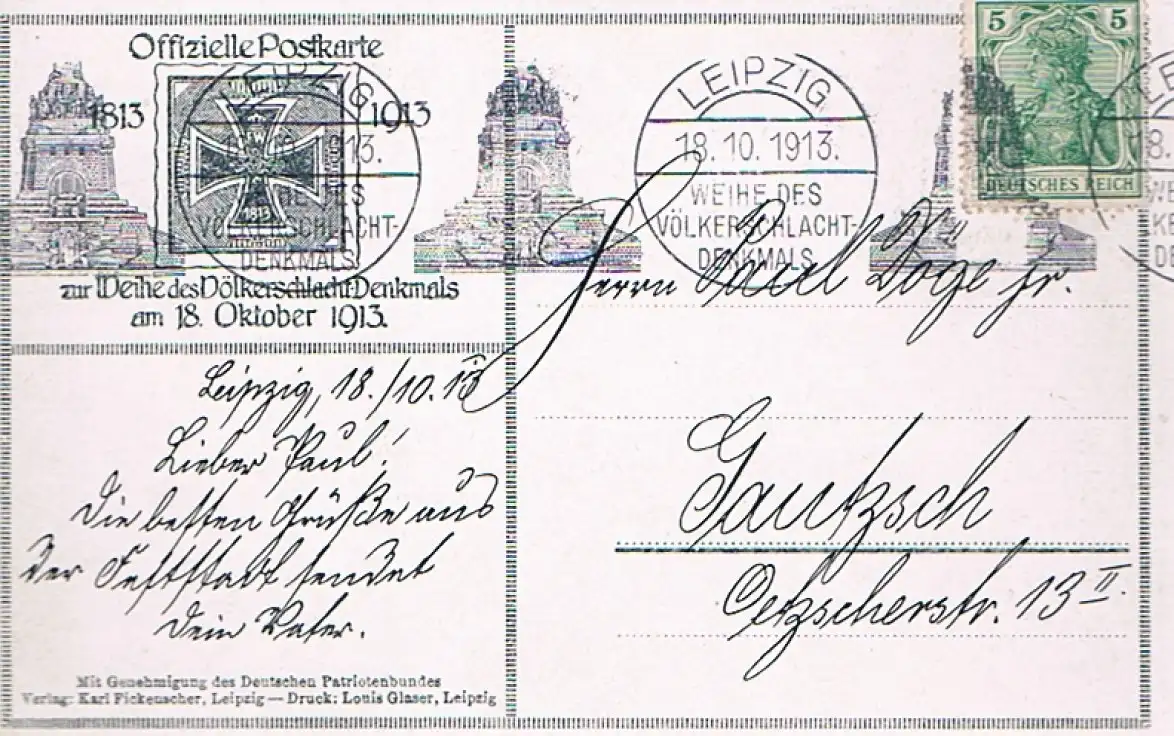 Offizielle Postkarte
1813 1913
1813
zur Weihe des Völkerschlacht-Denkmals
am 18. Oktober 1913.
LEIPZIG
18.10.1913.
WEIHE DES
VÖLKERSCHLACHT-
DENKMALS
LEIPZIG
18.10.1913.
WEIHE DES
VÖLKERSCHLACHT-
DENKMALS
5 5
DEUTSCHES REICH
Leipzig, 18./10.13
Lieber Paul!
Die besten Grüße aus
der Feststadt sendet
Dein Vater.
Mit Genehmigung des Deutschen Patriotenbundes
Verlag: Karl Fickenscher, Leipzig — Druck: Louis Glaser, Leipzig
Herrn Paul jr.
Gautzsch
Oetzscherstr. 13 II.